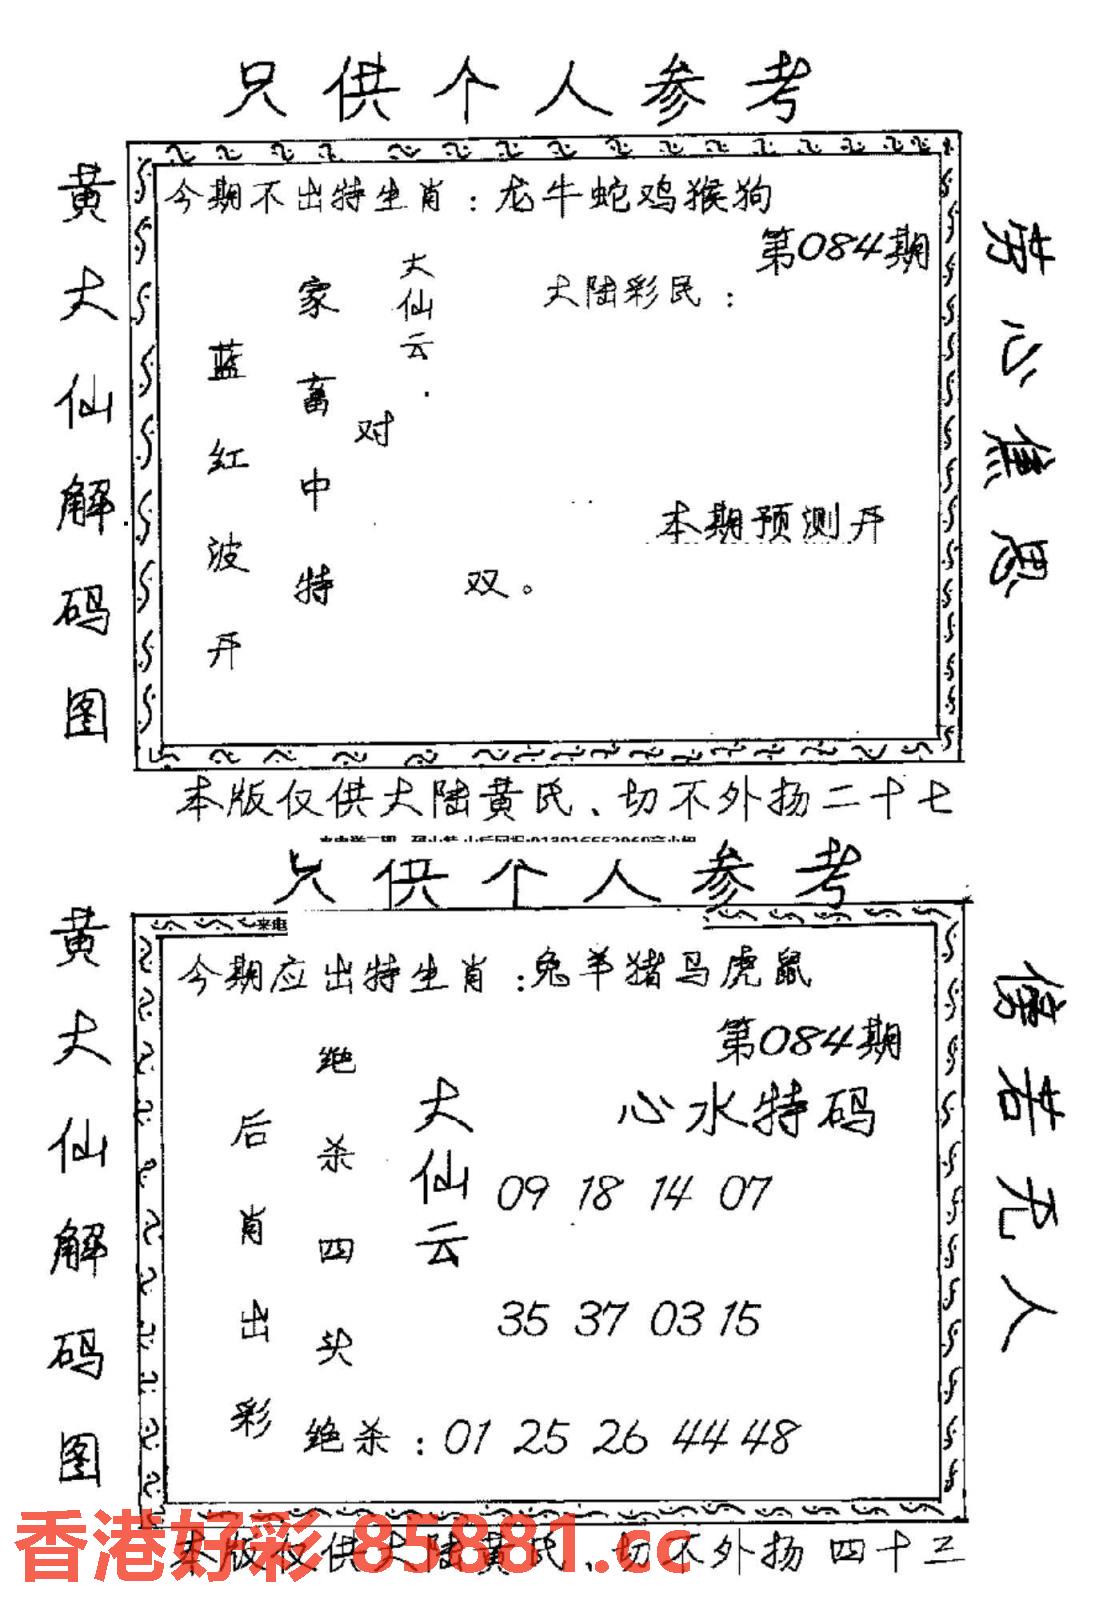 只供个人参考
黄大仙解码图
今期不出特生肖：龙牛蛇鸡猴狗
第084期
大陆彩民：
大仙云
家畜中特
对
蓝红波开
双。
本期预测开
劳心焦思
本版仅供大陆黄氏、切不外扬二十七
只供个人参考
黄大仙解码图
来电
今期应出特生肖：兔羊猪马虎鼠
第084期
心水特码
大仙云
绝杀四头
后肖出彩
09 18 14 07
35 37 03 15
绝杀：01 25 26 44 48
傍若无人
香港好彩 85881.cc
本版仅供大陆黄氏、切不外扬 四十三